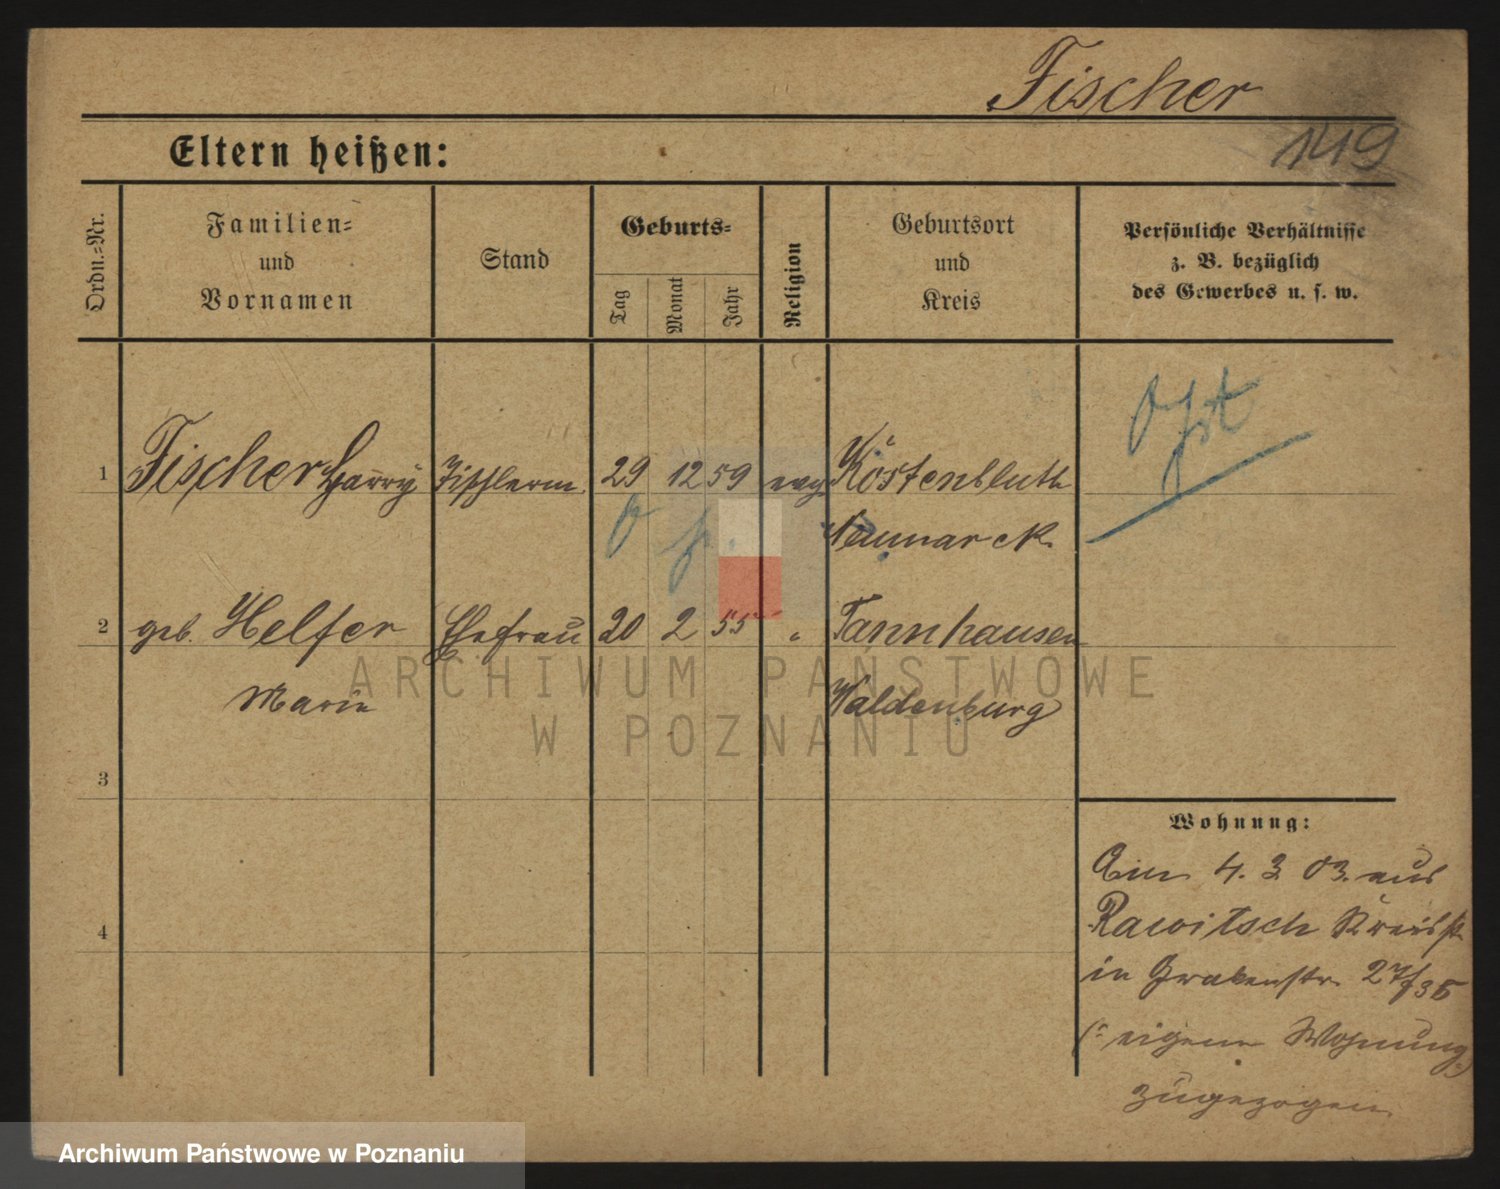 Fischer
149
Eltern heißen:
Ordn.-Nr.
Familien-
und
Vornamen
Stand
Geburts-
Tag
Monat
Jahr
Religion
Geburtsort
und
Kreis
Persönliche Verhältnisse
z. B. bezüglich
des Gewerbes u. s. w.
1 Fischer Harry Tischlerm. 29 12 59 evg. Köstenbluth
Neumarck
2 geb. Helfer Ehefrau 20 2 55 " Tannhausen
Marie Waldenburg
3
4
Wohnung:
Am 4. 3 03. aus
Rawitsch
in Grabenstr. 27/35
(: eigene Wohnung)
zugezogen.
ARCHIWUM PAŃSTWOWE
W POZNANIU
Archiwum Państwowe w Poznaniu